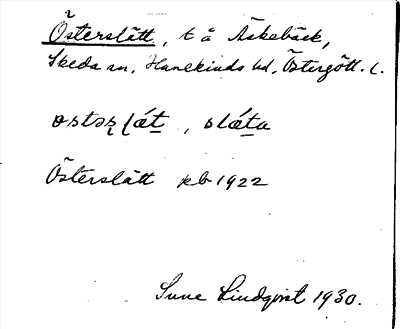 Österslätt, t å Äskebäck,
Skeda sn, Hanekinds hd, Östergötl. l.
østəʀ ʃǽt, slǽta
Österslätt jeb 1922
Sune Lindqvist 1930.